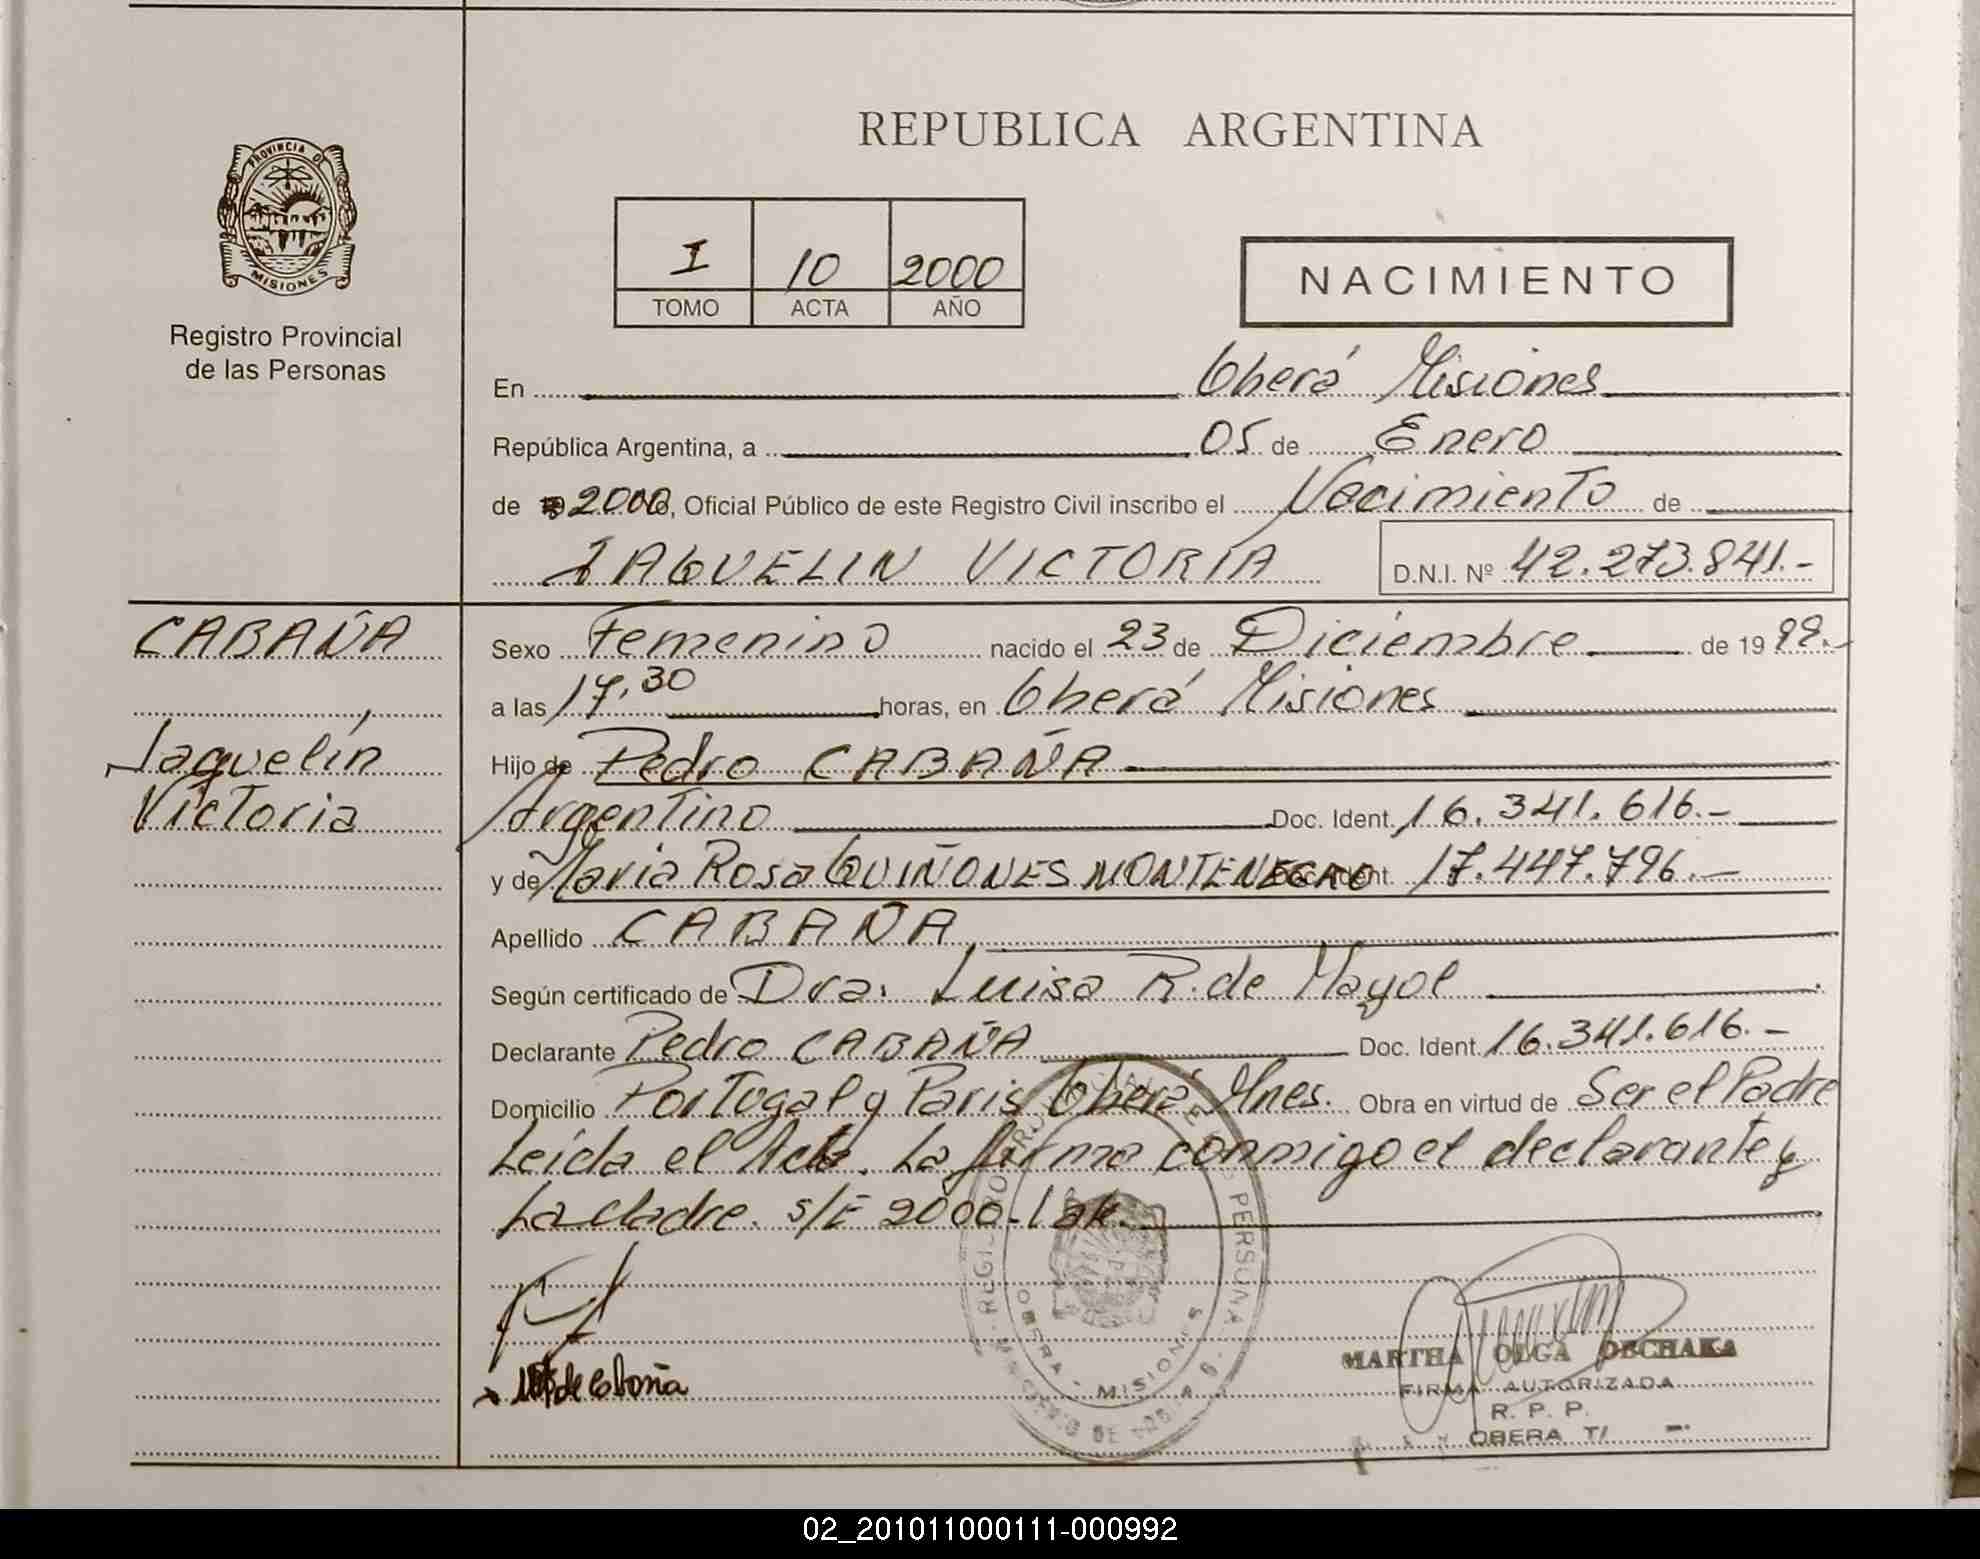 REPUBLICA ARGENTINA
PROVINCIA DE
MISIONES
Registro Provincial
de las Personas
I 10 2000
TOMO ACTA AÑO
NACIMIENTO
En Oberá Misiones
República Argentina, a 05 de Enero
de 2000, Oficial Público de este Registro Civil inscribo el Nacimiento de
JAQUELIN VICTORIA D.N.I. Nº 42.273.841.-
CABAÑA
Jaquelín
Victoria
Sexo Femenino nacido el 23 de Diciembre de 19 99.-
a las 17.30 horas, en Oberá Misiones
Hijo de Pedro CABAÑA
Argentino Doc. Ident. 16.341.616.-
y de Maria Rosa QUIÑONES MONTENEGRO Doc. Ident. 17.447.796.-
Apellido CABAÑA
Según certificado de Dra. Luisa R. de Mayol
Declarante Pedro CABAÑA Doc. Ident. 16.341.616.-
Domicilio Portugal y Paris Oberá Mnes. Obra en virtud de Ser el Padre
Leída el Acta. La firma conmigo el declarante y
La Madre. s/E 2000-
de Cabaña
OBERA - MISIONES
MARTHA OLGA DECHAKA
FIRMA AUTORIZADA
R. P. P.
OBERA T/
02_201011000111-000992